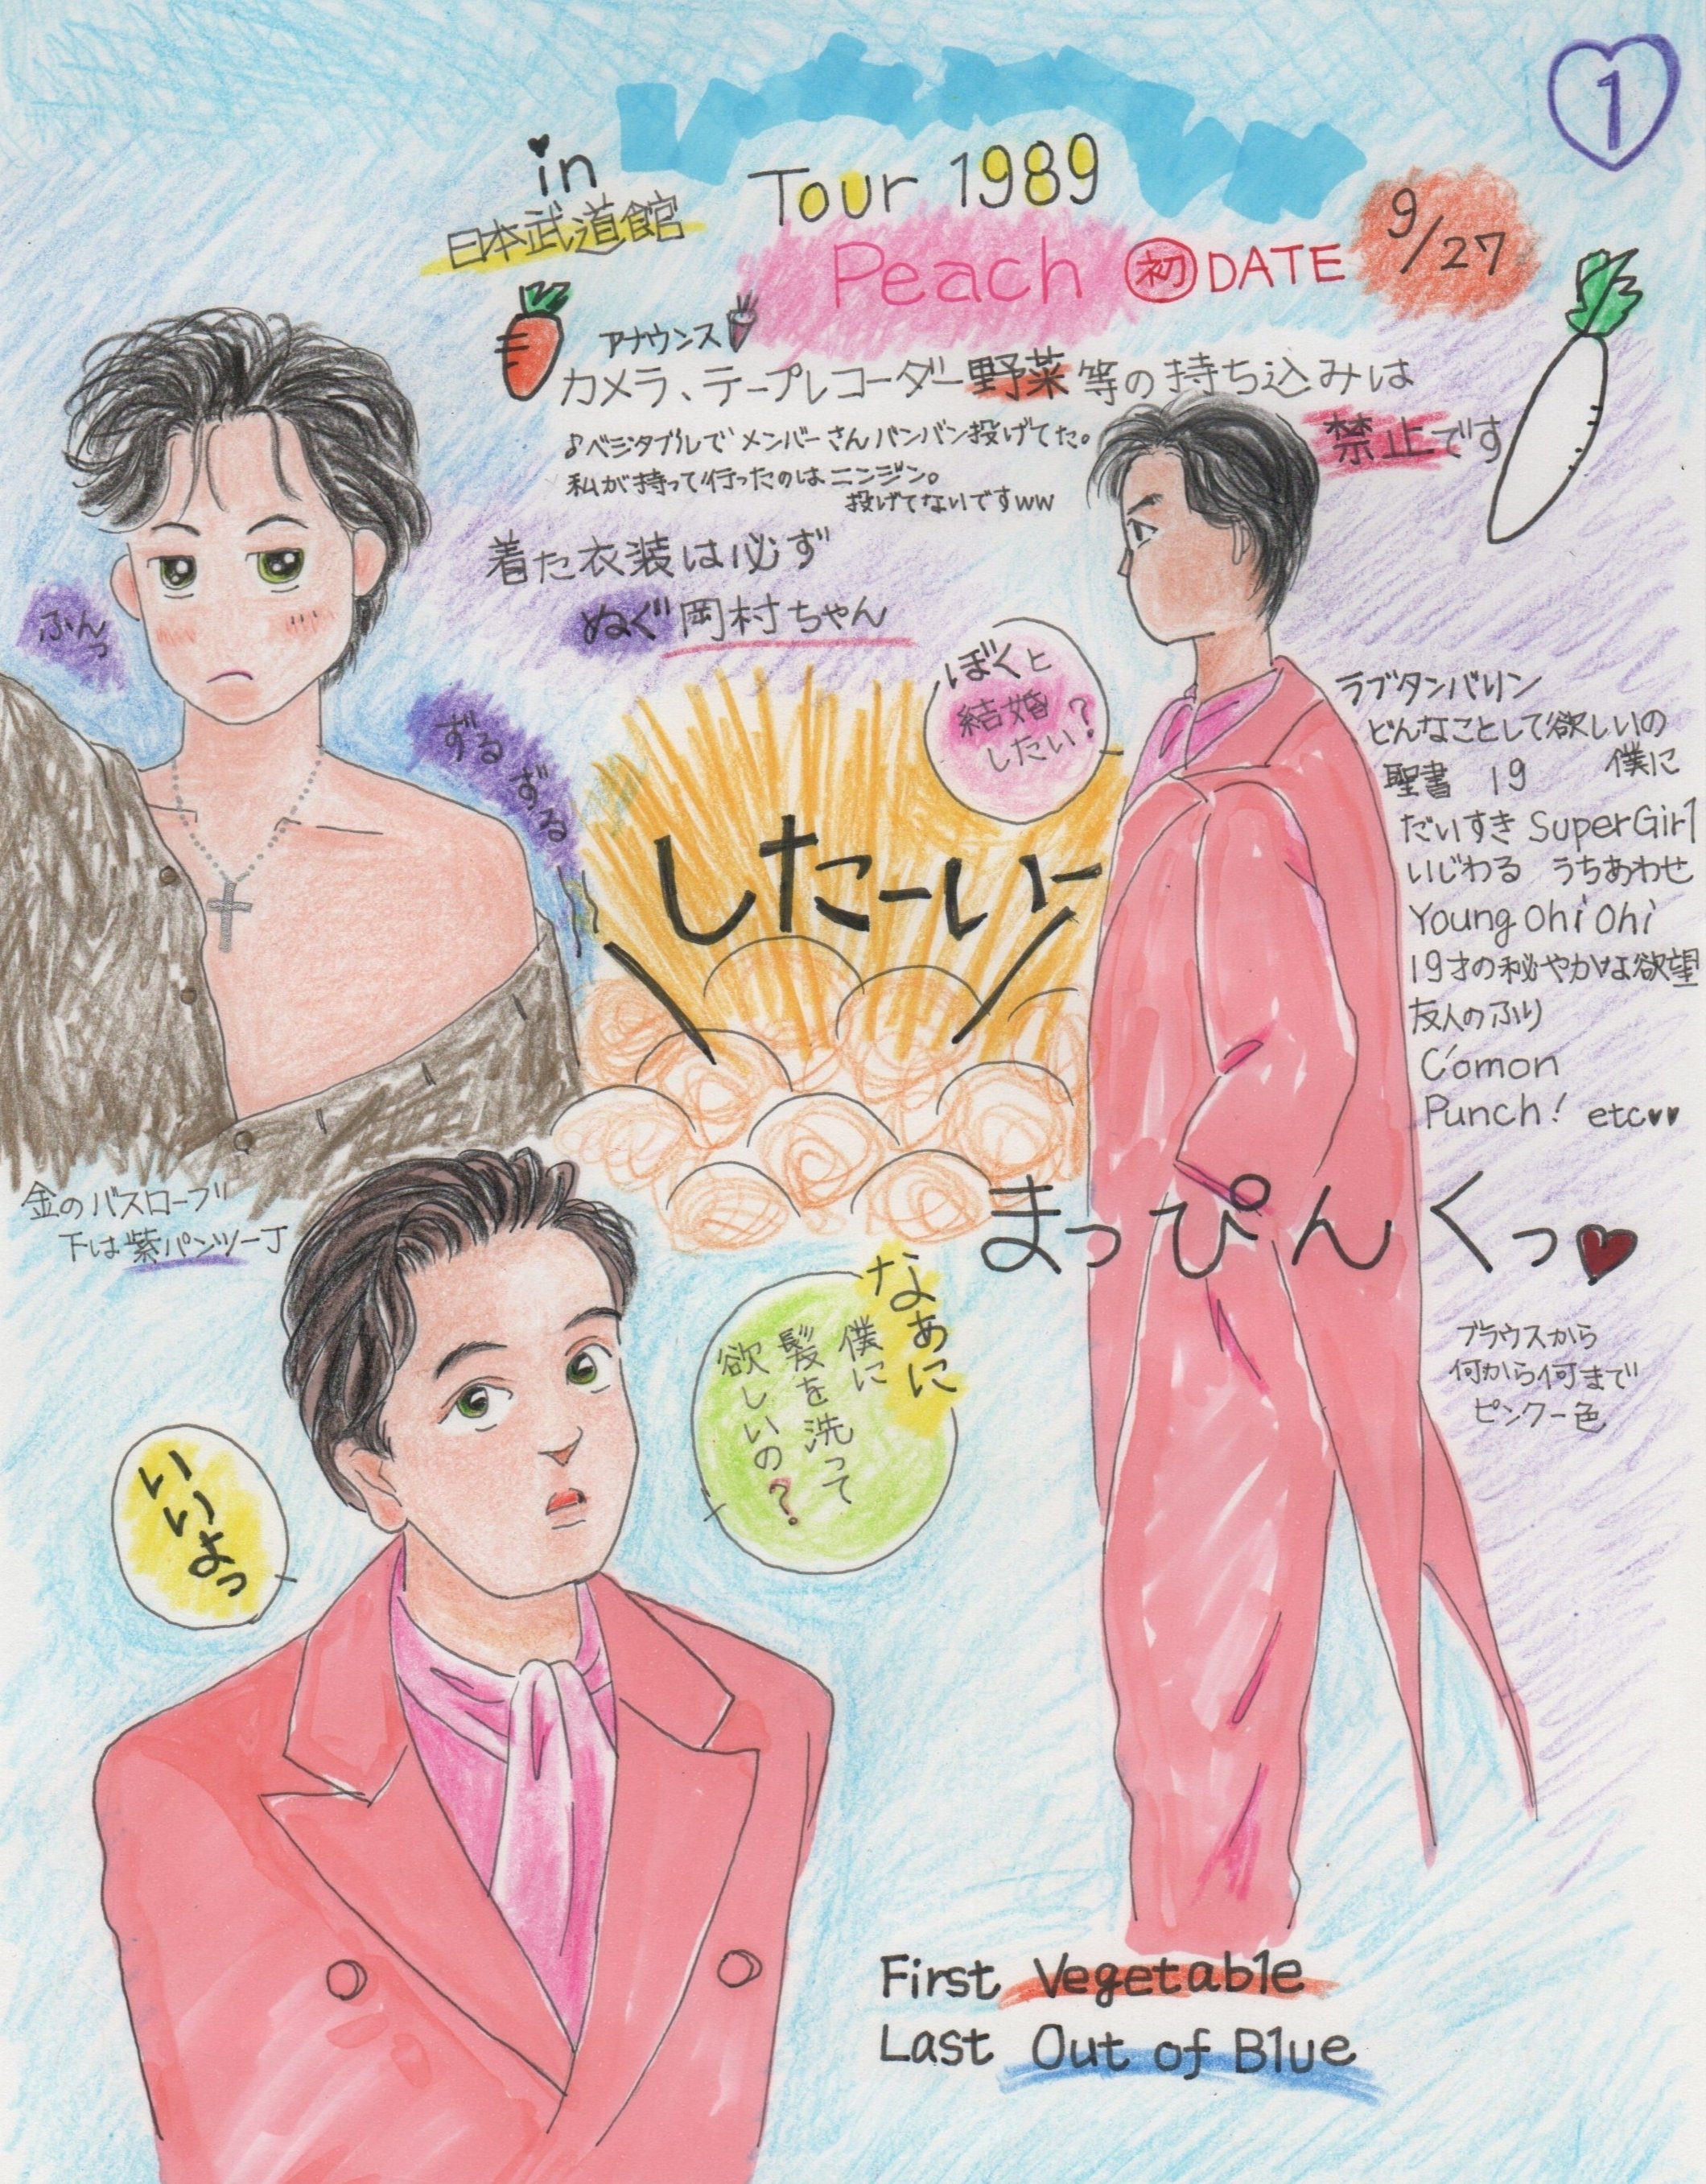 1
in
日本武道館
Tour 1989
Peach 初 DATE 9/27
アナウンス
カメラ、テープレコーダー野菜等の持ち込みは
禁止です
♪ベジタブルでメンバーさんバンバン投げてた。
私が持って行ったのはニンジン。
投げてないですww
着た衣装は必ず
ぬぐ岡村ちゃん
ふんっ
ずるずる
ぼくと
結婚
したい?
したーいー
ラブタンバリン
どんなことして欲しいの
僕に
聖書 19
だいすき SuperGirl
いじわる うちあわせ
Young oh! oh!
19才の秘やかな欲望
友人のふり
C'omon
Punch! etc♥♥
金のバスローブ
下は紫パンツ一丁
まっぴんくっ♥
なぁに
僕に
髪を洗って
欲しいの?
いいよっ
ブラウスから
何から何まで
ピンク一色
First Vegetable
Last Out of Blue